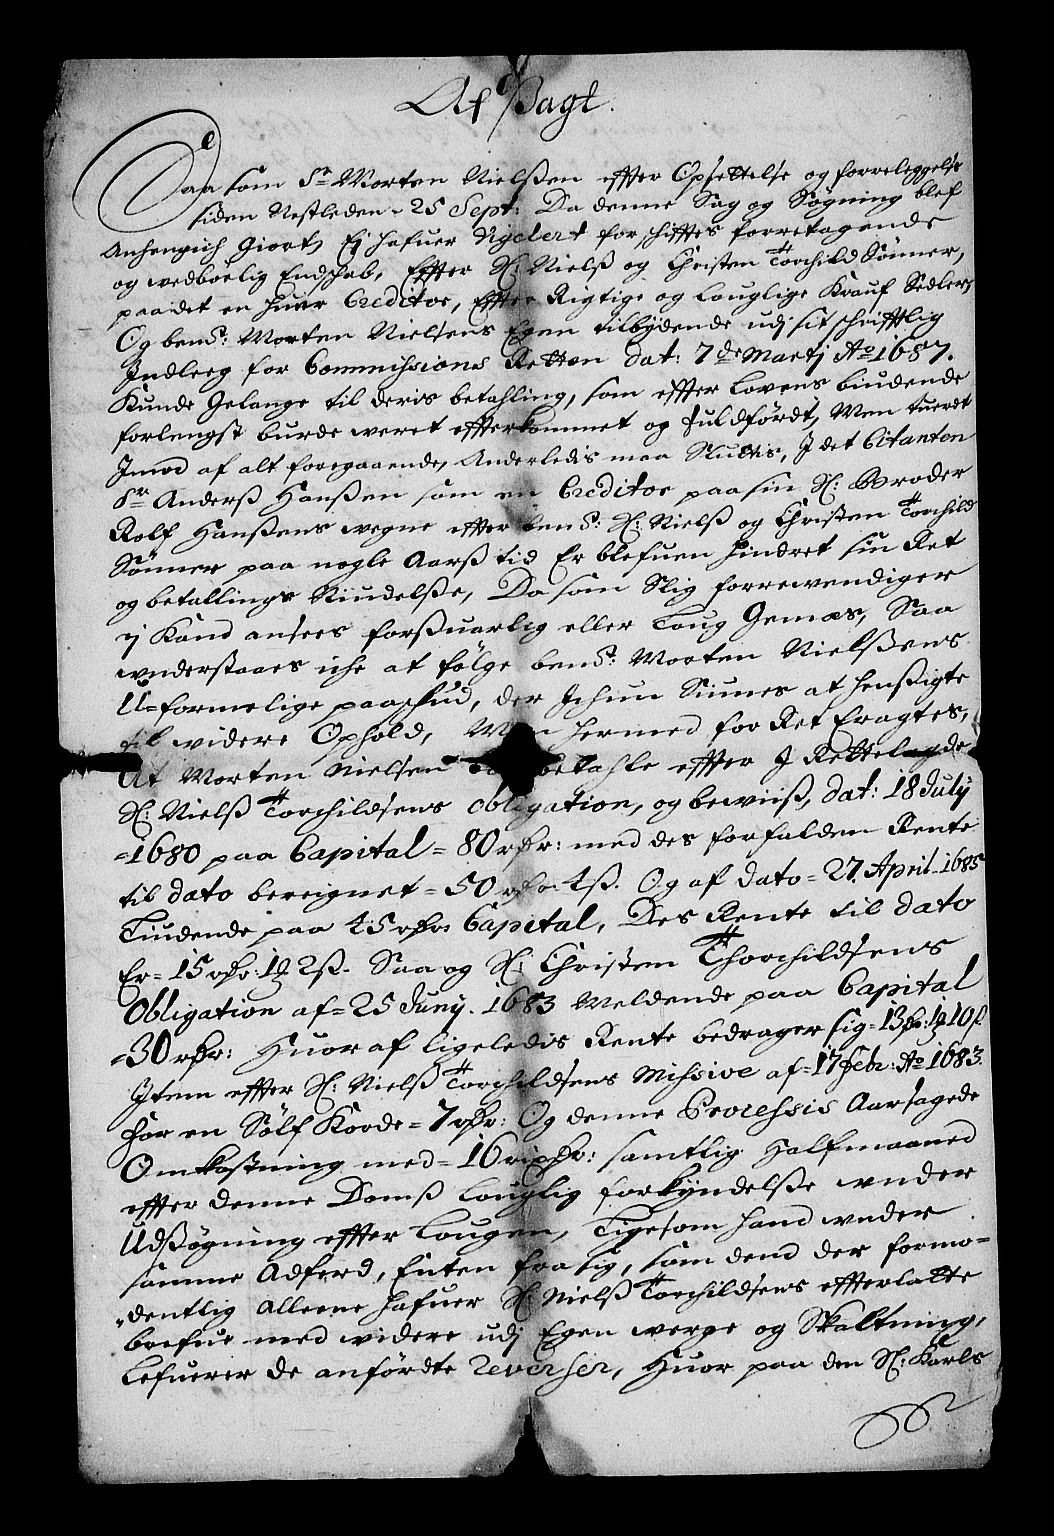 Afsagt.
Saa som Sr Morten Nielsen effter Opsettelse og forreleggelse
siden Nestleden 25 Sept: Da denne Sag og Søgning blef
Anhengich Giort, Ej hafuer Vigilert for schifftes forretagende
og wedboelig Endschab, Effter Sl: Nielß og Christen Torchild Sønner,
paadet en huer Creditor, Effter Rigtige og louglige Krauf Sedler,
Og bend: Morten Nielsens Egen tilbydende udj sit schrifftlig
Indleeg for Commissions Retten dat: 7de Martj Ao 1687.
Kunde Gelange til deris betahling, som effter Lovens biudende
forlengst burde weret effterkommet og fuldfördt, Men tuerdt
Jmod af alt foregaaende, Anderledis maa Sluttis, J det Citanten
Sr Anderß Hanßen som en Creditor paa sin Sl: Broder
Rolf Hanßens wegne effter bend: Sl: Nielß og Christen Torchild
Sønner paa nogle Aarß tid Er blefuen hindret sin Ret
og betallings Niudelße, Da som Slig forrewendiger
ej Kand ansees forßuarlig eller Loug Gemæs, Saa
wnderstaaes iche at følge bend: Morten Nielßens
U-formelige paaskud, der Ichun Siunes at henßigte
til widere Ophold, Men hermed for Ret Eragtes,
At Morten Nielsen bør betahle effter J Rettelagde
Sl: Nielß Torchildsens obligation, og bewiiß, dat: 18 July
1680 paa Capital = 80 rdr: med des forfalden Rente
til dato bereignet = 50 rdr 4ß. Og af dato = 27 April 1685
Liudende paa 45 rdr Capital, Des Rente til dato
Er = 15 rdr: 1ȝ 2ß. Saa og Sl: Christen Thorchildsens
Obligation af = 25 Juny. 1683 Meldende paa Capital
=30 rdr: Huoraf ligeledis Rente bedrager sig = 13 rdr: 1ȝ 10ß
Item effter Sl: Nielß Torchildsens Missive af = 17 Febr: Ao 1683.
for en Sølf Koode = 7 rdr: Og denne Processis Aarsagede
Omkostning med = 16 rixdr: samtlig Halfmaaned
effter denne Domß louglig forkyndelße wnder
Udßøgning effter Lougen, Ligesom hand wnder
samme Adferd, Enten fra sig, som dend der formo=
dentlig alleene hafuer Sl: Nielß Torchildsens effterlatte
brefue med widere udj Egen werge og Skaltning,
Lefuerer de anfördte reverser, Huor paa den Sl: Karls